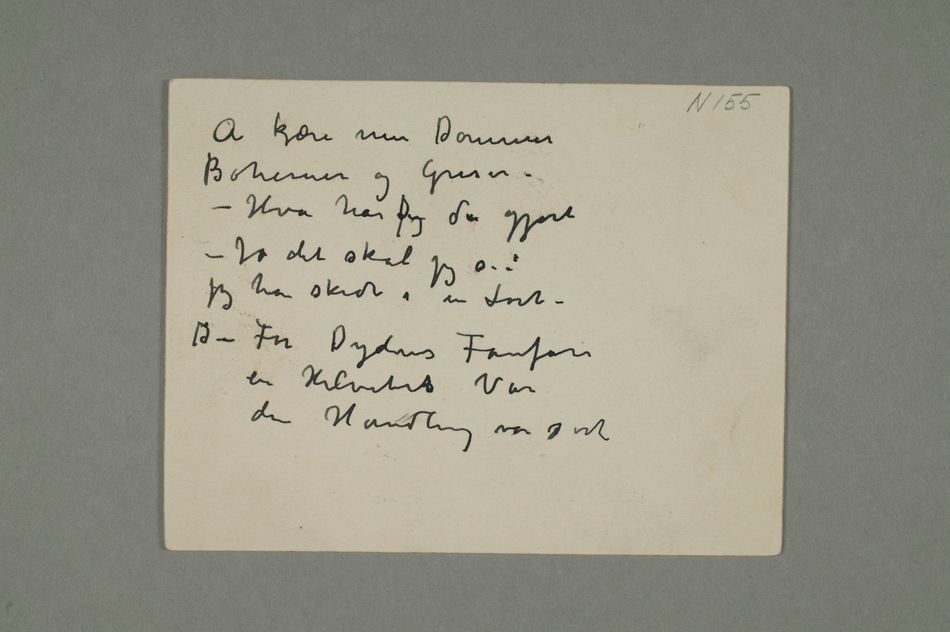 N 155
A kjære min Dommer
Bohemer og Griser –
– Hva har du gjort
– Jo det skal jeg s..:
jeg har skidt i en Lort –
D – For Dydens Fanfare
en Helvetets Var
din Handling var sort